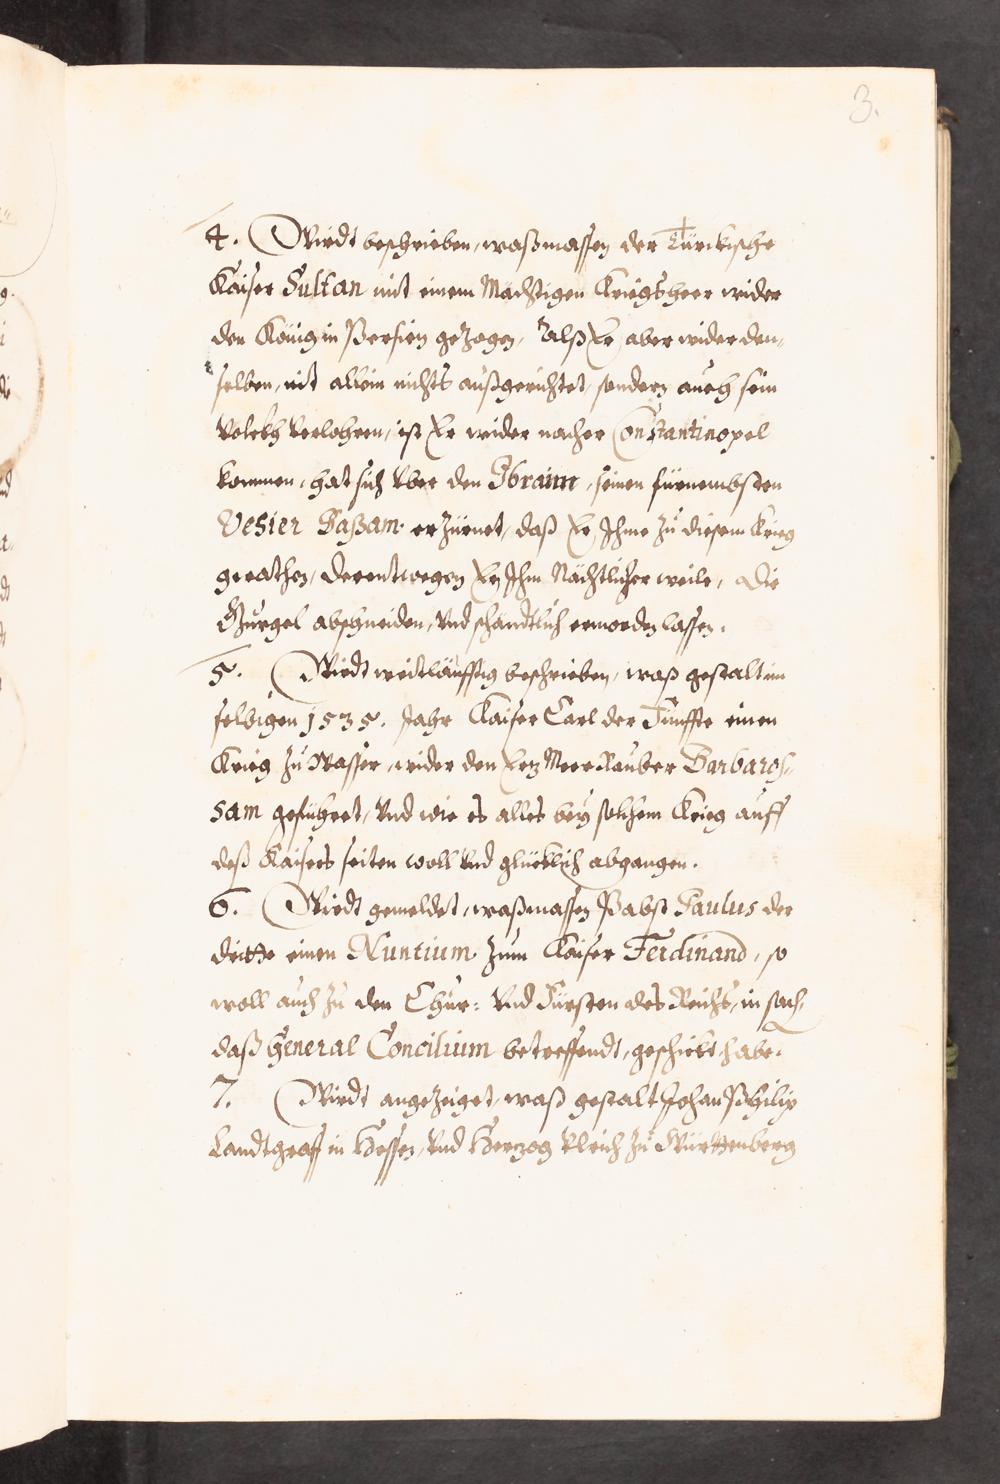 3.
4. Wirdt beschrieben, waßmassen der Türckische
Kaiser Sultan mit einem Mächtigen Kriegßheer wider
den König in Persien gezogen, Alß Er aber wider den,
selben, nit allein nichts außgerichtet, sondern auch sein
Volckh verlohren, ist Er wider nacher Constantinopel
kommen, hat sich vber den Ibraim, seinen fürnembsten
Vesier Baßam erzürnet, daß Er Ihme zu diesem Krieg
gerathen, derentwegen Er Ihm Nächtlicher weile, die
Gurgel abschneiden, vnd schändtlich ermorden lassen.
5. Wirdt weitläuffig beschrieben, waß gestalt im
selbigen 1535. Jahr Kaiser Carl der Fünffte einen
Krieg zu Wasser, wider den Ertz Meer Rauber Barbaros,
sam geführet, vnd wie es alles bey solchem Krieg auff
deß Kaisers seiten woll vnd glücklich abgangen.
6. Wirdt gemeldet, waßmassen Pabst Paulus der
dritte einen Nuntium zum Kaiser Ferdinand, so
woll auch zu den Chur: vnd Fürsten des Reichs, in sach,
daß General Concilium betreffendt, geschickt habe.
7. Wirdt angezeiget, waß gestalt Johan Philip
Landtgraff in Hessen, vnd Hertzog Vlrich zu Württenberg